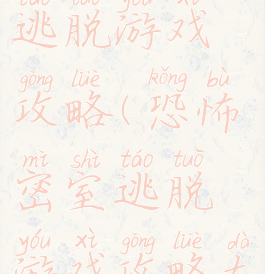 táo tuō yóu xì
逃脱游戏
gōng lüè kǒng bù
攻略(恐怖
mì shì táo tuō
密室逃脱
yóu xì gōng lüè dà
游戏攻略大